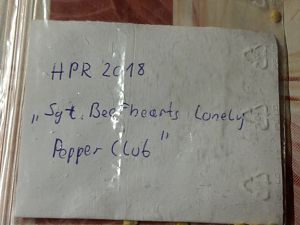 HPR 2018
„Sgt. Beefhearts Lonely
Pepper Club"